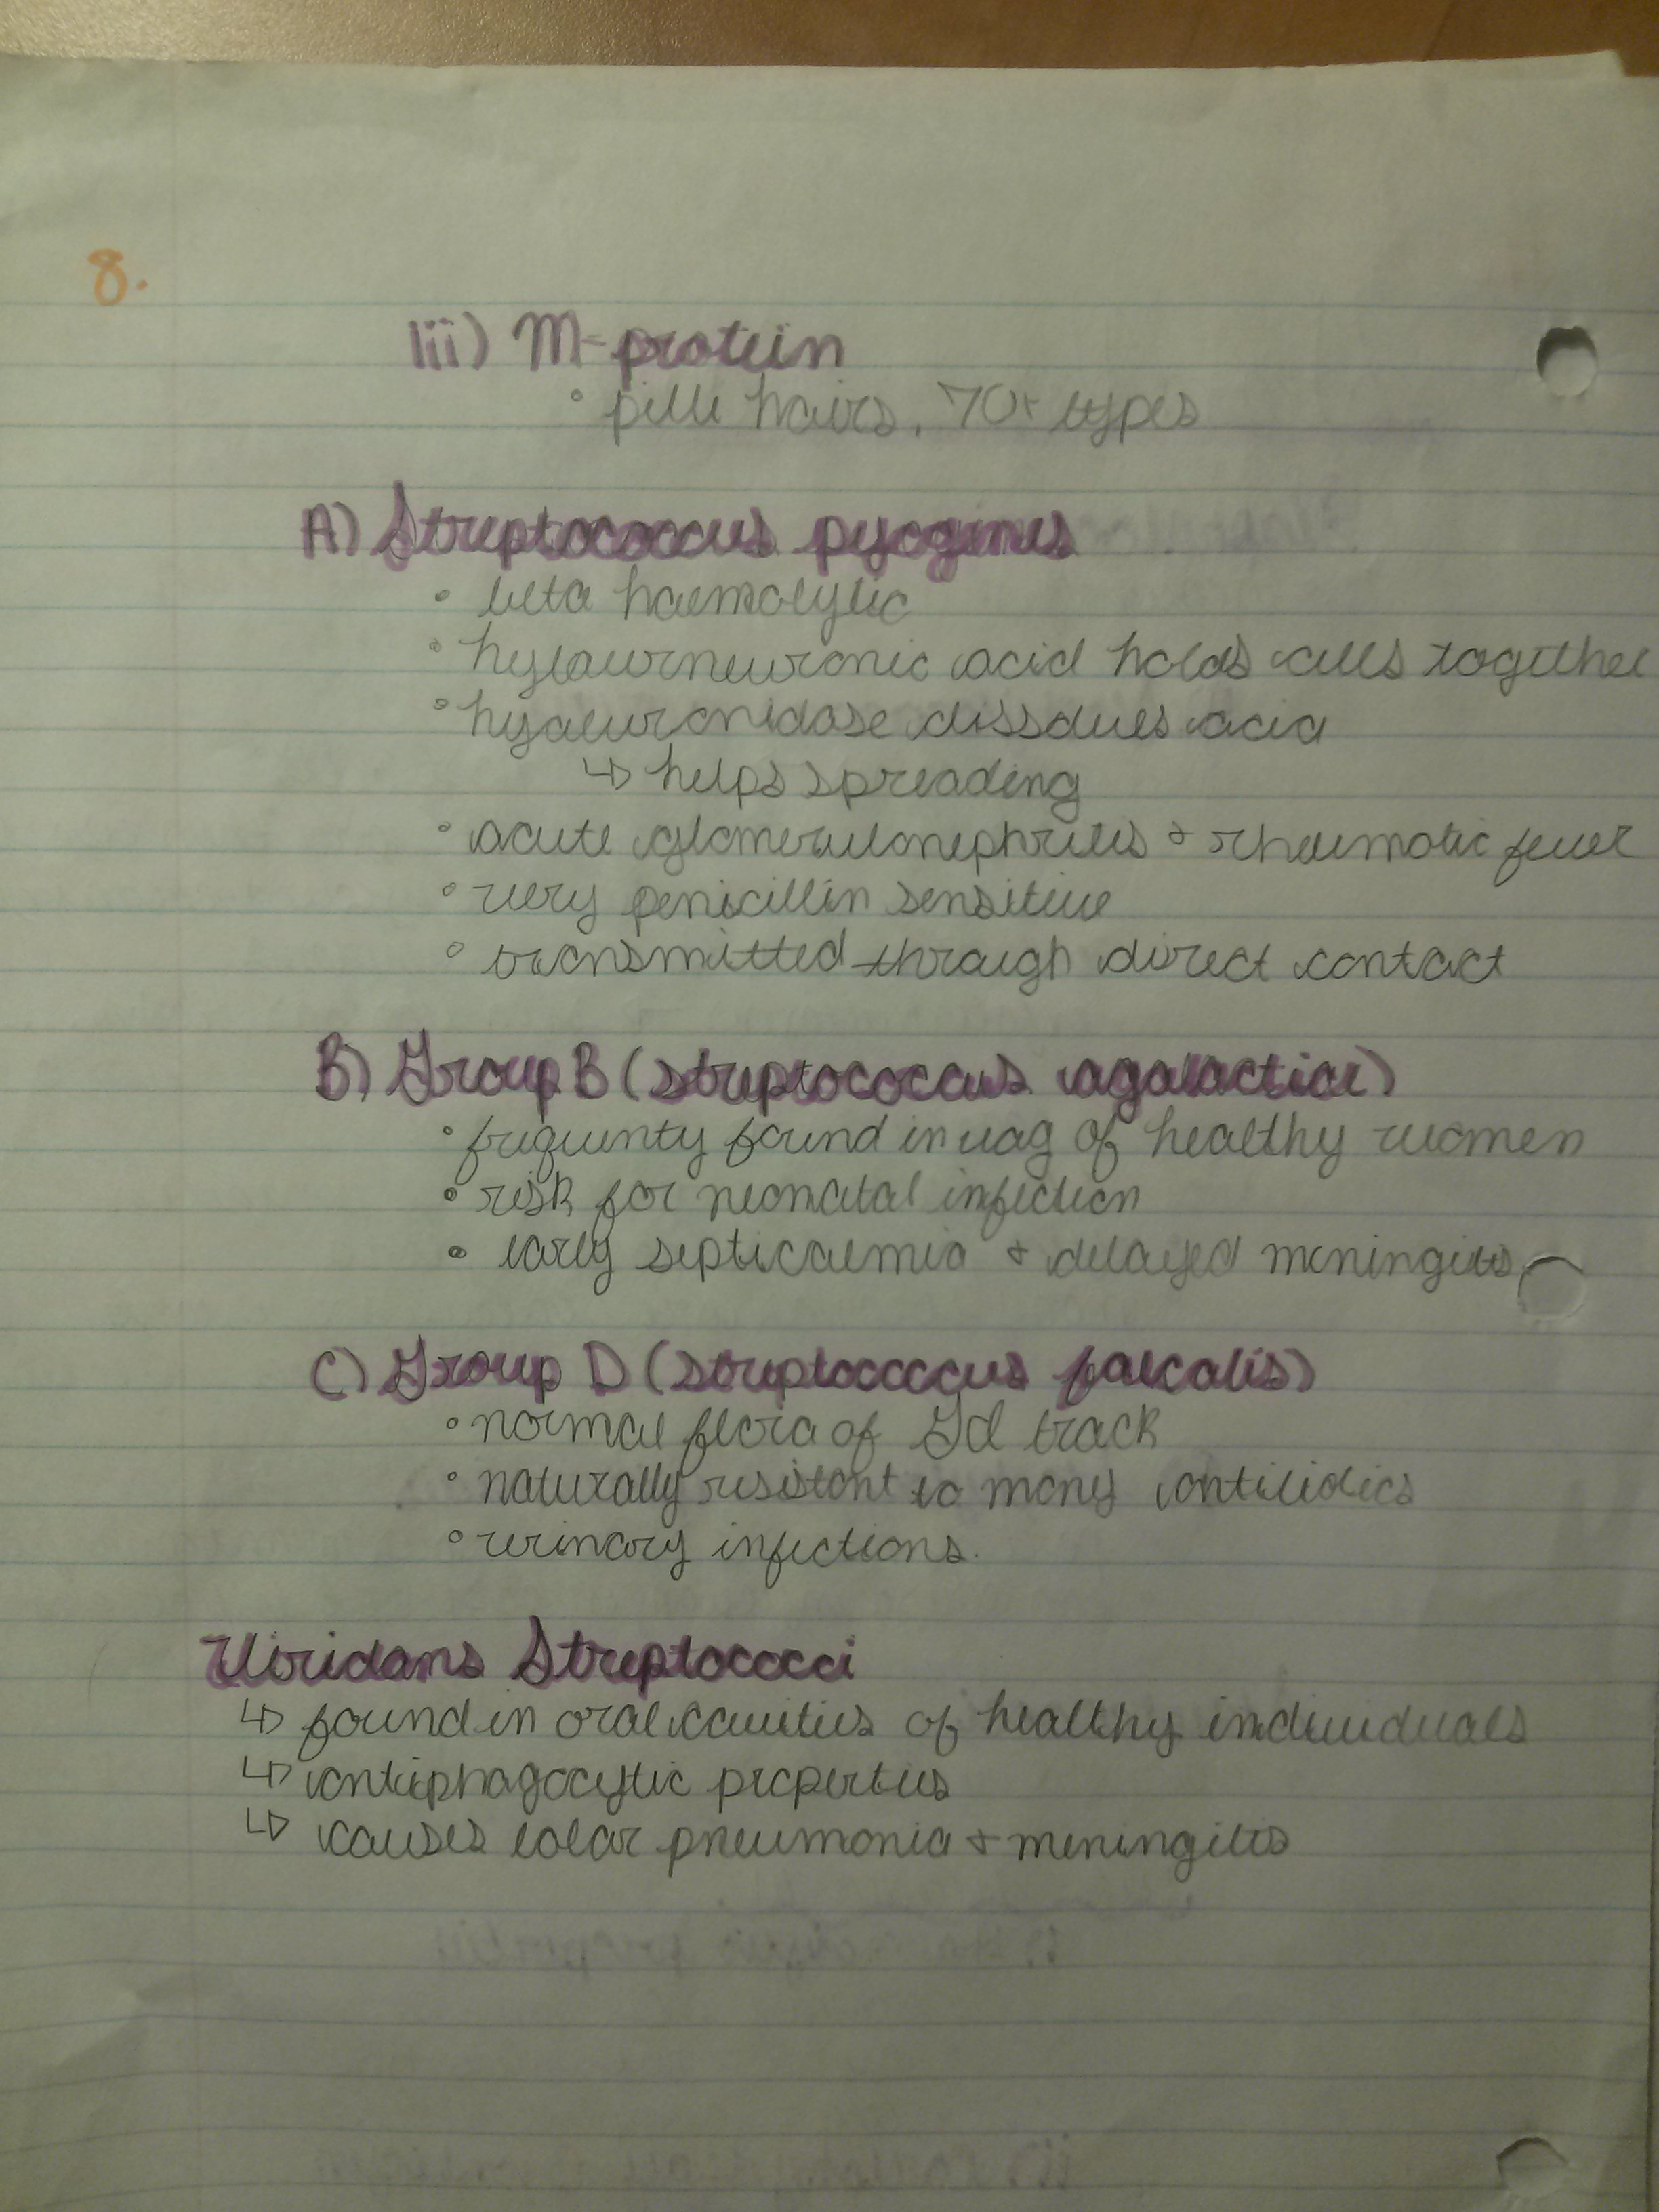 8.
iii) M-protein
• pille hairs, 70+ types
A) Streptococcus pyogines
• beta haemolytic
• hylaurneuronic acid holds cells together
• hyaluronidase dissolves acid
↳ helps spreading
• acute glomerulonephritis + rhaematic fever
• very penicillin sensitive
• transmitted through direct contact
B) Group B (streptococcus agalactiae)
• friquenty found in vag of healthy women
• risk for neonatal infection
• early septicaemia + delayed meningitis
C) Group D (streptococcus faecalis)
• normal flora of GI track
• naturally resistant to many antibiotics
• urinary infections.
Viridans Streptococci
↳ found in oral cavities of healthy individuals
↳ antiphagocytic properties
↳ causes lobar pneumonia + meningitis